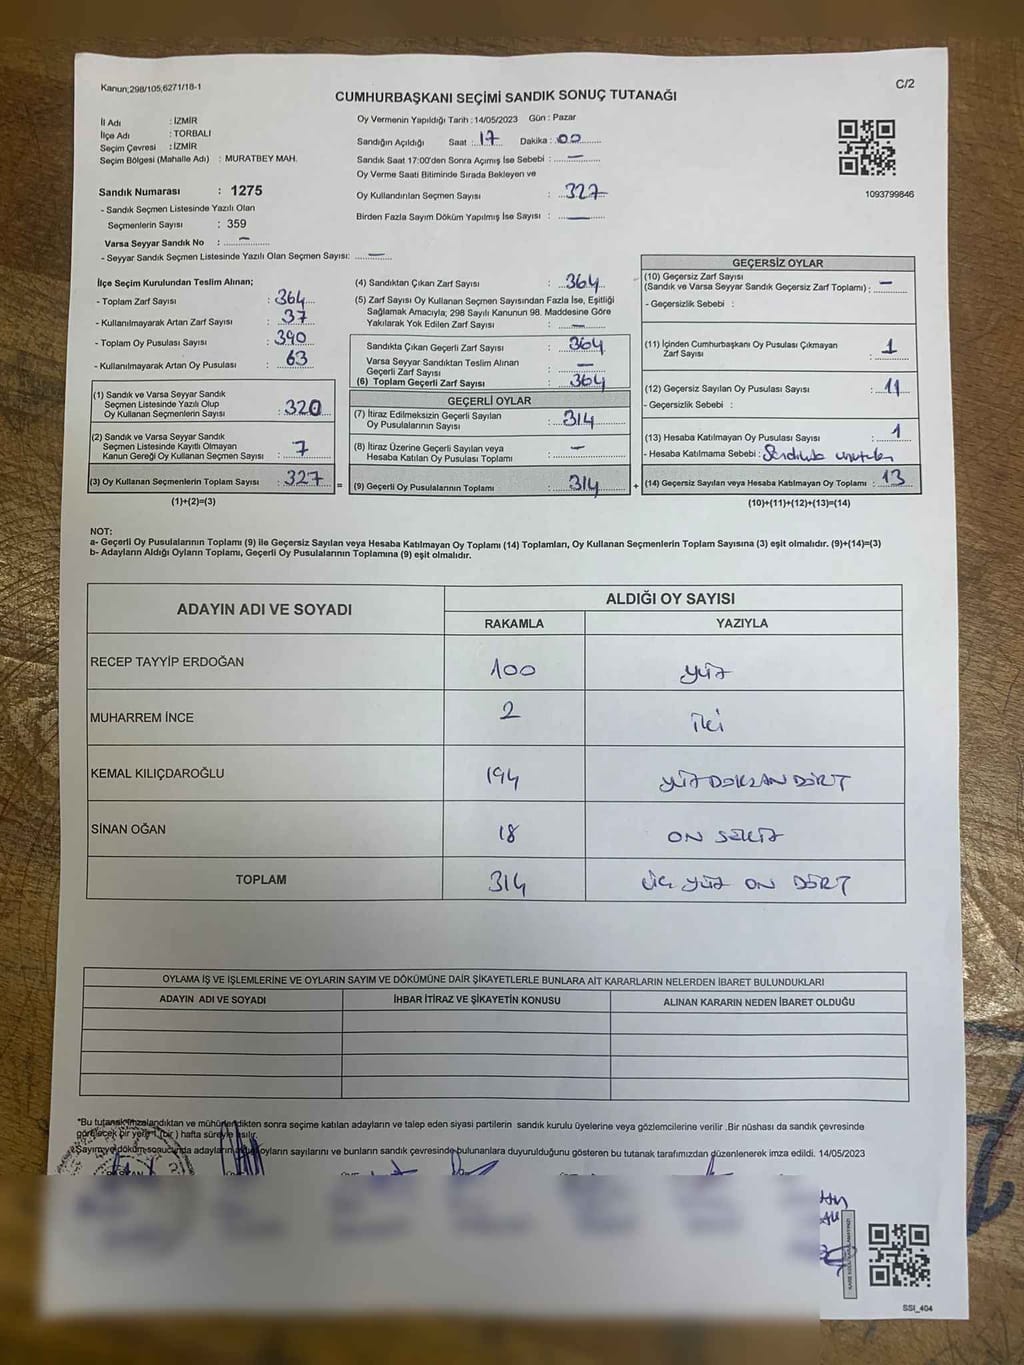 Kanun;298/105,6271/18-1
C/2
CUMHURBAŞKANI SEÇİMİ SANDIK SONUÇ TUTANAĞI
İl Adı : İZMİR
İlçe Adı : TORBALI
Seçim Çevresi : İZMİR
Seçim Bölgesi (Mahalle Adı) : MURATBEY MAH.
Sandık Numarası : 1275
- Sandık Seçmen Listesinde Yazılı Olan
Seçmenlerin Sayısı : 359
Varsa Seyyar Sandık No : –
- Seyyar Sandık Seçmen Listesinde Yazılı Olan Seçmen Sayısı: –
Oy Vermenin Yapıldığı Tarih : 14/05/2023 Gün : Pazar
Sandığın Açıldığı Saat : 17 Dakika : 00
Sandık Saat 17:00'den Sonra Açımış İse Sebebi : –
Oy Verme Saati Bitiminde Sırada Bekleyen ve
Oy Kullandırılan Seçmen Sayısı : 327
Birden Fazla Sayım Döküm Yapılmış İse Sayısı : –
1093799846
İlçe Seçim Kurulundan Teslim Alınan;
- Toplam Zarf Sayısı : 364
- Kullanılmayarak Artan Zarf Sayısı : 37
- Toplam Oy Pusulası Sayısı : 390
- Kullanılmayarak Artan Oy Pusulası : 63
(1) Sandık ve Varsa Seyyar Sandık
Seçmen Listesinde Yazılı Olup
Oy Kullanan Seçmenlerin Sayısı : 320
(2) Sandık ve Varsa Seyyar Sandık
Seçmen Listesinde Kayıtlı Olmayan
Kanun Gereği Oy Kullanan Seçmen Sayısı : 7
(3) Oy Kullanan Seçmenlerin Toplam Sayısı : 327
(1)+(2)=(3)
=
(4) Sandıktan Çıkan Zarf Sayısı : 364
(5) Zarf Sayısı Oy Kullanan Seçmen Sayısından Fazla İse, Eşitliği
Sağlamak Amacıyla; 298 Sayılı Kanunun 98. Maddesine Göre
Yakılarak Yok Edilen Zarf Sayısı : –
Sandıkta Çıkan Geçerli Zarf Sayısı : 364
Varsa Seyyar Sandıktan Teslim Alınan
Geçerli Zarf Sayısı : –
(6) Toplam Geçerli Zarf Sayısı : 364
GEÇERLİ OYLAR
(7) İtiraz Edilmeksizin Geçerli Sayılan
Oy Pusulalarının Sayısı : 314
(8) İtiraz Üzerine Geçerli Sayılan veya
Hesaba Katılan Oy Pusulası Toplamı : –
(9) Geçerli Oy Pusulalarının Toplamı : 314
+
GEÇERSİZ OYLAR
(10) Geçersiz Zarf Sayısı
(Sandık ve Varsa Seyyar Sandık Geçersiz Zarf Toplamı) : –
- Geçersizlik Sebebi :
(11) İçinden Cumhurbaşkanı Oy Pusulası Çıkmayan
Zarf Sayısı : 1
(12) Geçersiz Sayılan Oy Pusulası Sayısı : 11
- Geçersizlik Sebebi :
(13) Hesaba Katılmayan Oy Pusulası Sayısı : 1
- Hesaba Katılmama Sebebi : Sandıkta unutulan
(14) Geçersiz Sayılan veya Hesaba Katılmayan Oy Toplamı : 13
(10)+(11)+(12)+(13)=(14)
NOT:
a- Geçerli Oy Pusulalarının Toplamı (9) ile Geçersiz Sayılan veya Hesaba Katılmayan Oy Toplamı (14) Toplamları, Oy Kullanan Seçmenlerin Toplam Sayısına (3) eşit olmalıdır. (9)+(14)=(3)
b- Adayların Aldığı Oyların Toplamı, Geçerli Oy Pusulalarının Toplamına (9) eşit olmalıdır.
ADAYIN ADI VE SOYADI
ALDIĞI OY SAYISI
RAKAMLA YAZIYLA
RECEP TAYYİP ERDOĞAN 100 yüz
MUHARREM İNCE 2 iki
KEMAL KILIÇDAROĞLU 194 yüz DOKSAN DÖRT
SİNAN OĞAN 18 ON SEKİZ
TOPLAM 314 üç yüz ON DÖRT
OYLAMA İŞ VE İŞLEMLERİNE VE OYLARIN SAYIM VE DÖKÜMÜNE DAİR ŞİKAYETLERLE BUNLARA AİT KARARLARIN NELERDEN İBARET BULUNDUKLARI
ADAYIN ADI VE SOYADI İHBAR İTİRAZ VE ŞİKAYETİN KONUSU ALINAN KARARIN NEDEN İBARET OLDUĞU
*Bu tutanak imzalandıktan ve mühürlendikten sonra seçime katılan adayların ve talep eden siyasi partilerin sandık kurulu üyelerine veya gözlemcilerine verilir .Bir nüshası da sandık çevresinde
görelecek bir yere 1 (bir ) hafta süreyle asılır.
Sayım ve döküm sonucunda adayların aldığı oyların sayılarını ve bunların sandık çevresinde bulunanlara duyurulduğunu gösteren bu tutanak tarafımızdan düzenlenerek imza edildi. 14/05/2023
SSI_404